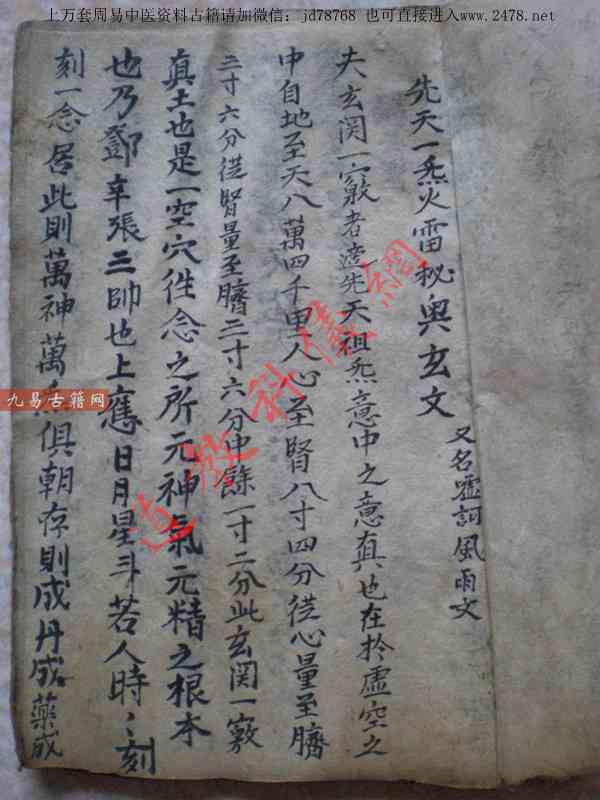 上万套周易中医资料古籍请加微信：jd78768 也可直接进入www.2478.net
先天一炁火雷秘奥玄文
又名嘘訶風雨文
夫玄関一竅者迺先天祖炁意中之意真也在於虚空之
中自地至天八萬四千里人心至腎八寸四分從心量至臍
三寸六分從腎量至臍三寸六分中餘一寸二分此玄関一竅
真土也是一空穴性念之所元神氣元精之根本
也乃鄧辛張三帥也上應日月星斗若人時〻刻
刻一念居此則萬神萬 俱朝存則成丹成藥成
道教科儀網
九易古籍网